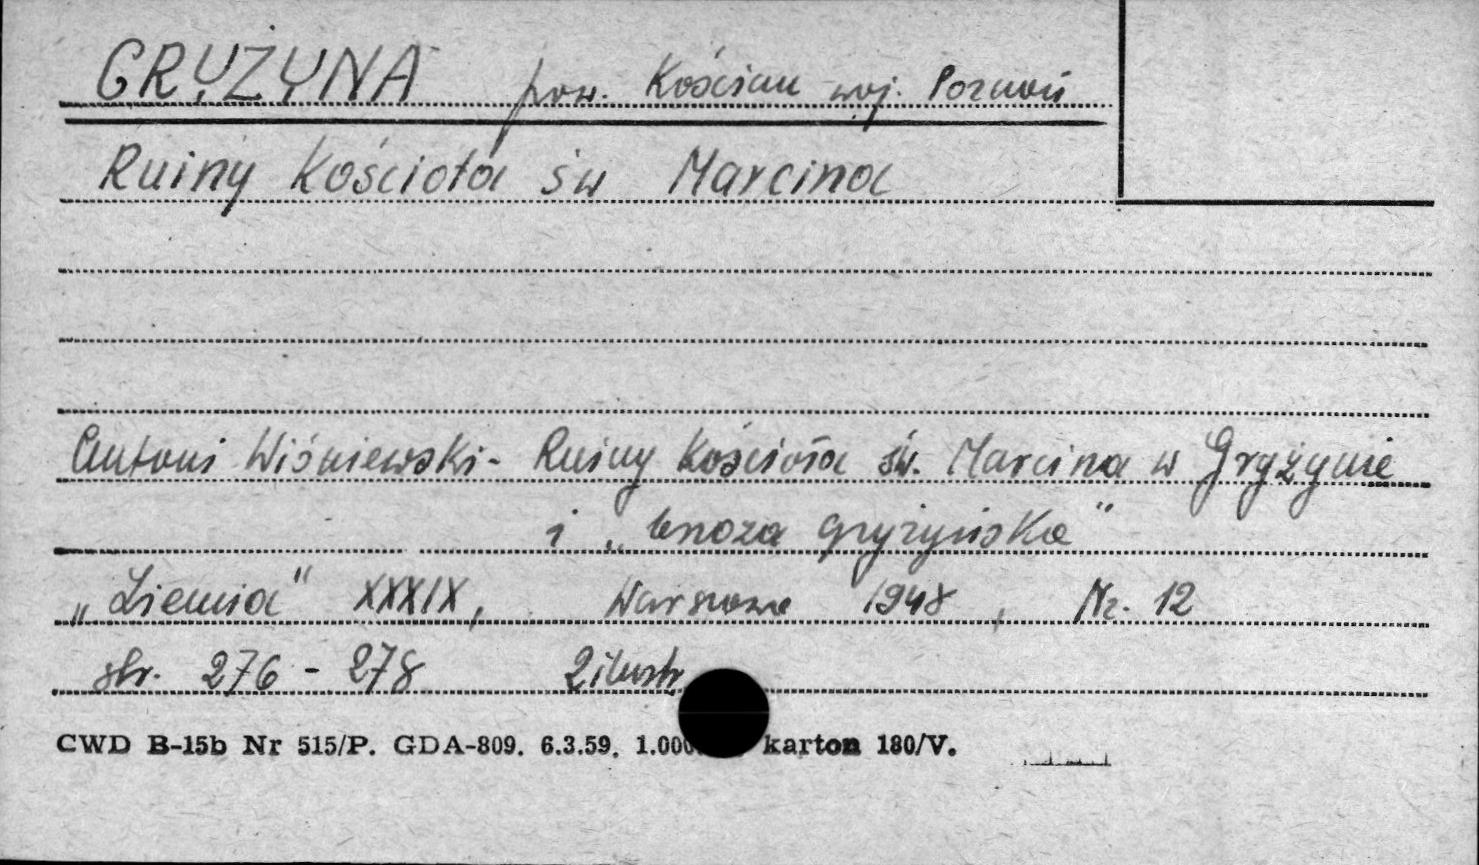 GRYŻYNA pow. Kościan woj. Poznań
Ruiny Kościoła św Marcina
Antoni Wiśniewski - Ruiny Kościoła św. Marcina w Gryżynie
i „ gryżyńska"
„Ziemia" XXXIX, Warszawa 1948, Nr. 12
str. 276 - 278 2 ilustr
CWD B-15b Nr 515/P. GDA-809. 6.3.59. 1.000 karton 180/V.